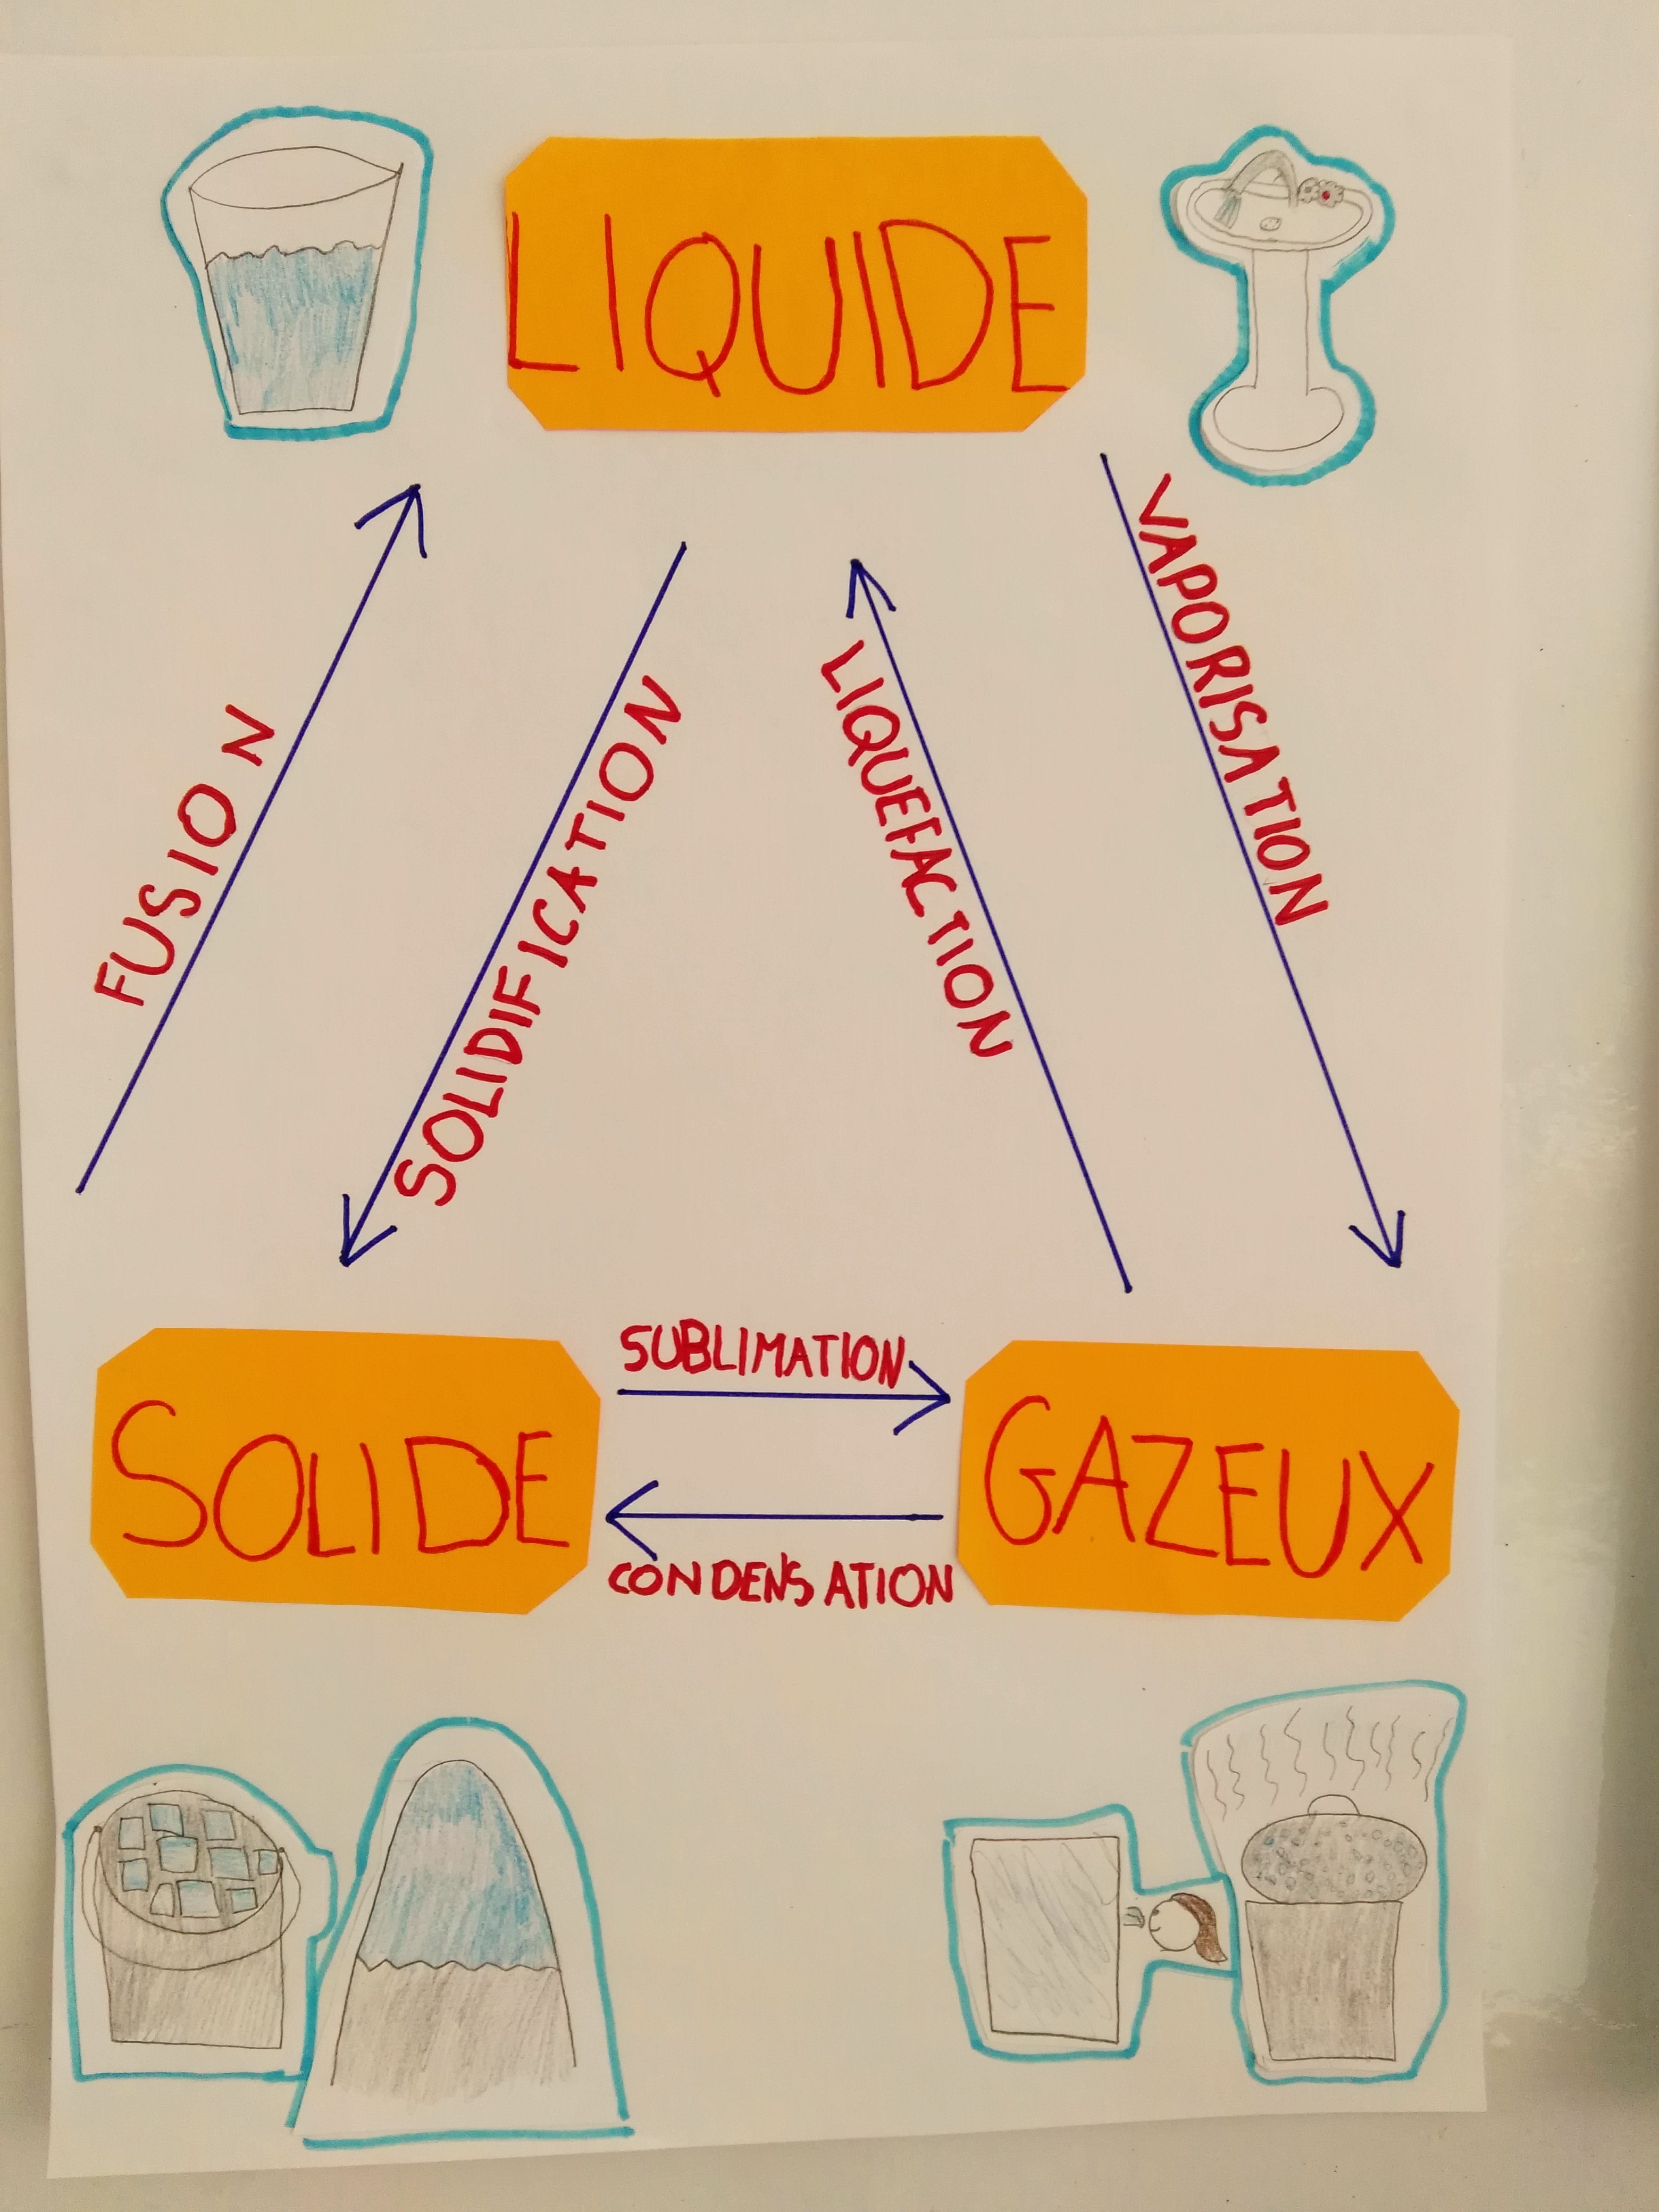 LIQUIDE
FUSION
SOLIDIFICATION
LIQUEFACTION
VAPORISATION
SUBLIMATION
SOLIDE
GAZEUX
CONDENSATION